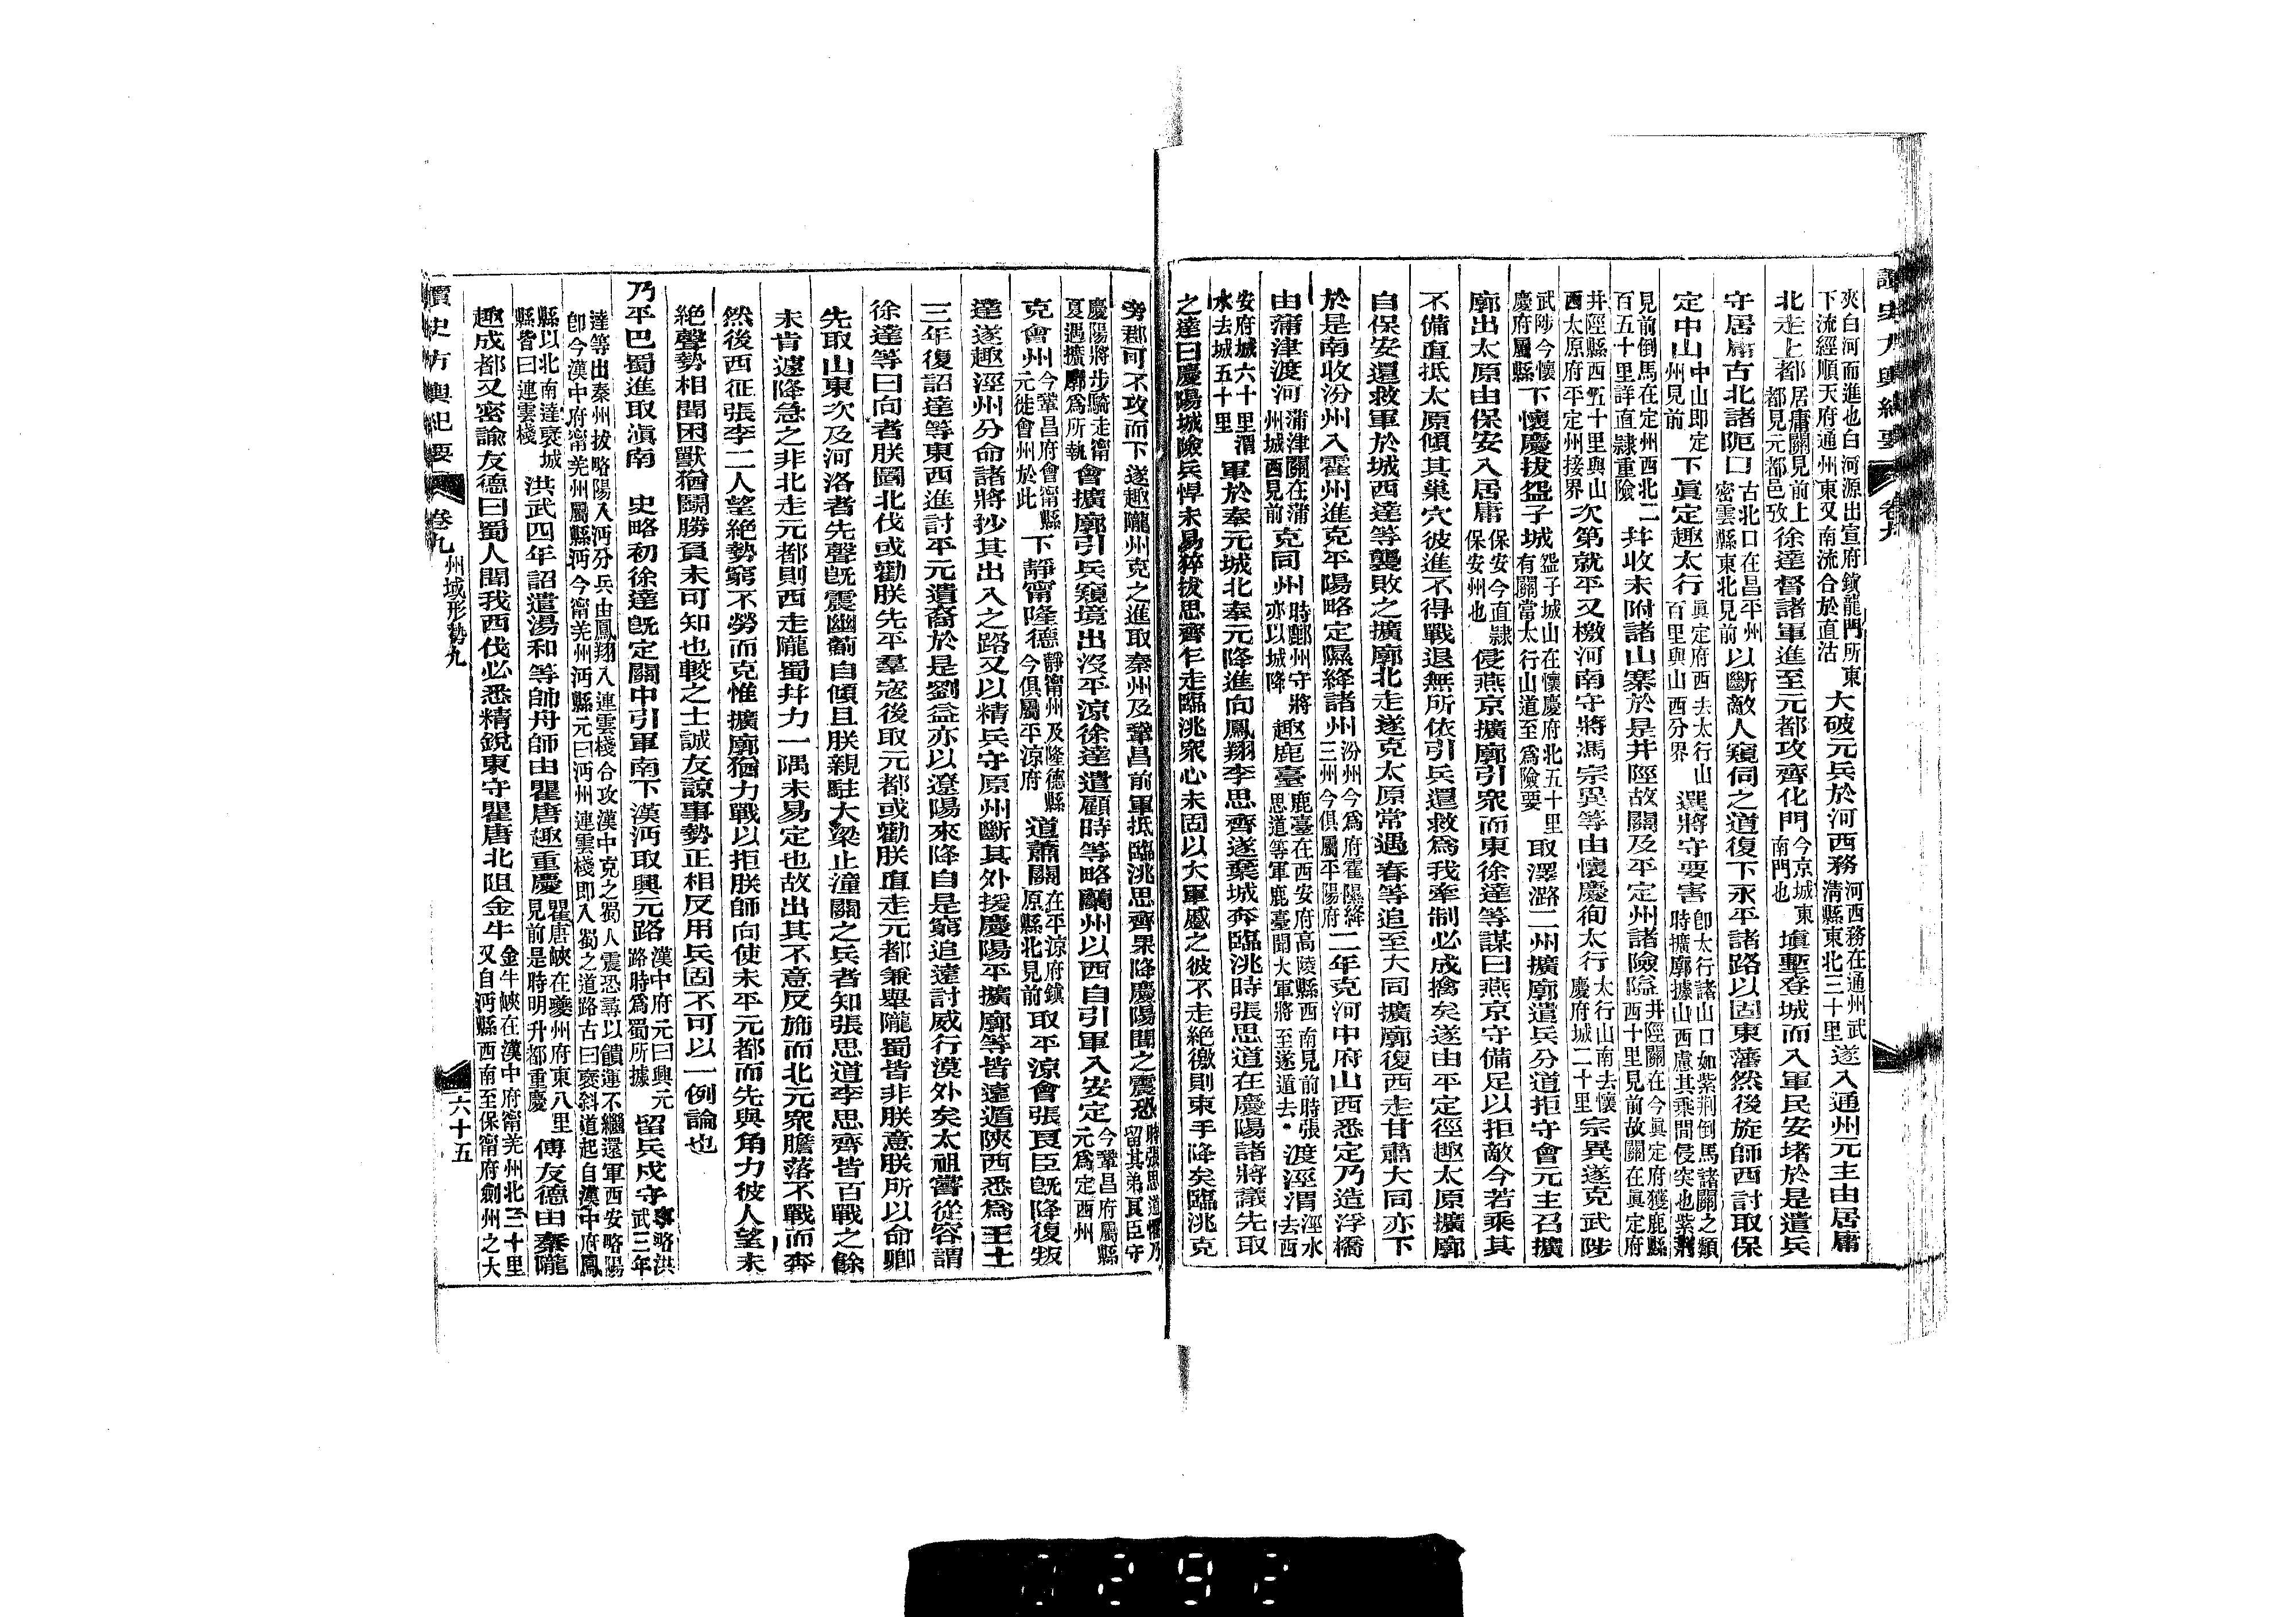 讀史方輿紀要 卷九
夾白河而進也白河源出宣府鎮龍門所東
下流經順天府通州東又南流合於直沽
大破元兵於河西務
河西務在通州武
清縣東北三十里
遂入通州元主由居庸
北走上都
居庸關見前上
都見元都邑攷
徐達督諸軍進至元都攻齊化門
今京城東
南門也
塡塹登城而入軍民安堵於是遣兵
守居庸古北諸阨口
古北口在昌平州
密雲縣東北見前
以斷敵人窺伺之道復下永平諸路以固東藩然後旋師西討取保
定中山
中山卽定
州見前
下眞定趣太行
眞定府西去太行山
百里與山西分界
選將守要害
卽太行諸山口如紫荆倒馬諸關之類
時擴廓據山西慮其乘間侵突也紫荆
見前倒馬在定州西北二
百五十里詳直隷重險
幷收未附諸山寨於是井陘故關及平定州諸險隘
井陘關在今眞定府獲鹿縣
西十里見前故關在眞定府
井陘縣西五十里與山
西太原府平定州接界
次第就平又檄河南守將馮宗異等由懷慶徇太行
太行山南去懷
慶府城二十里
宗異遂克武陟
武陟今懷
慶府屬縣
下懷慶拔盌子城
盌子城山在懷慶府北五十里
有關當太行山道至爲險要
取澤潞二州擴廓遣兵分道拒守會元主召擴
廓出太原由保安入居庸
保安今直隷
保安州也
侵燕京擴廓引衆而東徐達等謀曰燕京守備足以拒敵今若乘其
不備直抵太原傾其巢穴彼進不得戰退無所依引兵還救爲我牽制必成擒矣遂由平定徑趣太原擴廓
自保安還救軍於城西達等襲敗之擴廓北走遂克太原常遇春等追至大同擴廓復西走甘肅大同亦下
於是南收汾州入霍州進克平陽略定隰絳諸州
汾州今爲府霍隰絳
三州今俱屬平陽府
二年克河中府山西悉定乃造浮橋
由蒲津渡河
蒲津關在蒲
州城西見前
克同州
時鄜州守將
亦以城降
趣鹿臺
鹿臺在西安府高陵縣西南見前時張
思道等軍鹿臺聞大軍將至遂遁去
渡涇渭
涇水
去西
安府城六十里渭
水去城五十里
軍於奉元城北奉元降進向鳳翔李思齊遂棄城奔臨洮時張思道在慶陽諸將議先取
之達曰慶陽城險兵悍未易猝拔思齊乍走臨洮衆心未固以大軍蹙之彼不走絕徼則束手降矣臨洮克
旁郡可不攻而下遂趣隴州克之進取秦州及鞏昌前軍抵臨洮思齊果降慶陽聞之震恐
時張思道懼乃
留其弟良臣守
慶陽將步騎走甯
夏遇擴廓爲所執
會擴廓引兵窺境出沒平涼徐達遣顧時等略蘭州以西自引軍入安定
今鞏昌府屬縣
元爲定西州
克會州
今鞏昌府會甯縣
元徙會州於此
下靜甯隆德
靜甯州及隆德縣
今俱屬平涼府
道蕭關
在平涼府鎮
原縣北見前
取平涼會張良臣旣降復叛
達遂趣涇州分命諸將抄其出入之路又以精兵守原州斷其外援慶陽平擴廓等皆遠遁陝西悉爲王土
三年復詔達等東西進討平元遺裔於是劉益亦以遼陽來降自是窮追遠討威行漠外矣太祖嘗從容謂
徐達等曰向者朕圖北伐或勸朕先平羣寇後取元都或勸朕直走元都兼舉隴蜀皆非朕意朕所以命卿
先取山東次及河洛者先聲旣震幽薊自傾且朕親駐大梁止潼關之兵者知張思道李思齊皆百戰之餘
未肯遽降急之非北走元都則西走隴蜀幷力一隅未易定也故出其不意反旆而北元衆膽落不戰而奔
然後西征張李二人望絕勢窮不勞而克惟擴廓猶力戰以拒朕師向使未平元都而先與角力彼人望未
絕聲勢相聞困獸猶鬭勝負未可知也較之士誠友諒事勢正相反用兵固不可以一例論也
乃平巴蜀進取滇南
史略初徐達旣定關中引軍南下漢沔取興元路
漢中府元曰興元
路時爲蜀所據
留兵戍守
事略洪
武三年
達等出秦州拔略陽入沔分兵由鳳翔入連雲棧合攻漢中克之蜀人震恐尋以饋運不繼還軍西安略陽
卽今漢中府甯羌州屬縣沔今甯羌州沔縣元曰沔州連雲棧卽入蜀之道路古曰褒斜道起自漢中府鳳
縣以北南達褒城
縣皆曰連雲棧
洪武四年詔遣湯和等帥舟師由瞿唐趣重慶
瞿唐峽在夔州府東八里
見前是時明升都重慶
傅友德由秦隴
趣成都又密諭友德曰蜀人聞我西伐必悉精銳東守瞿唐北阻金牛
金牛峽在漢中府甯羌州北三十里
又自沔縣西南至保甯府劍州之大
讀史方輿紀要 卷九 州域形勢九 六十五